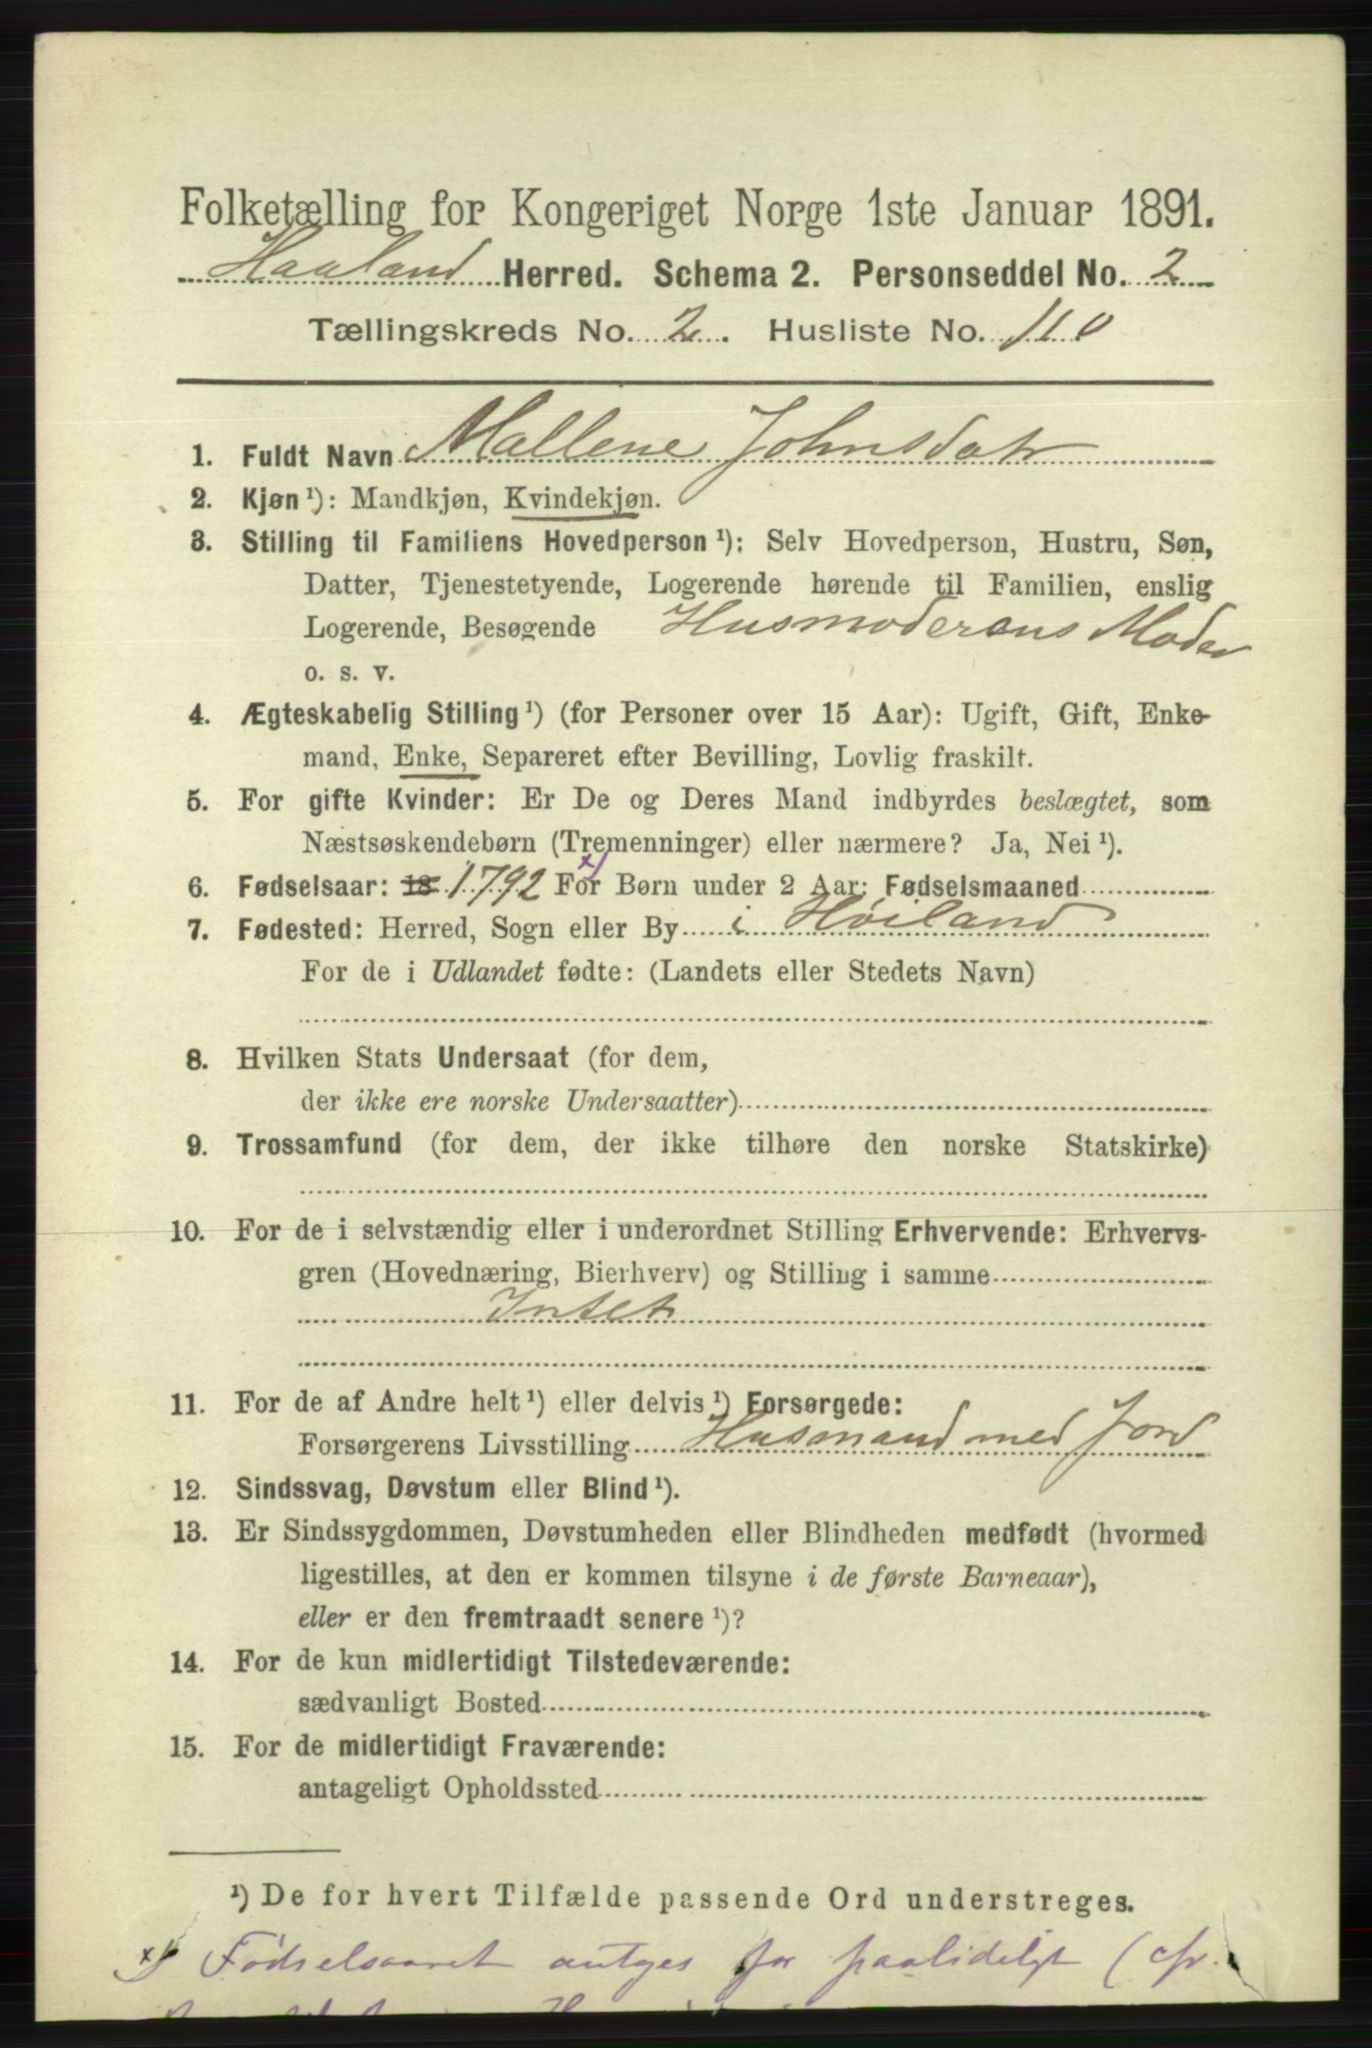 Folketælling for Kongeriget Norge 1ste Januar 1891.
Haaland Herred. Schema 2. Personseddel No. 2
Tællingskreds No. 2. Husliste No. 110
1. Fuldt Navn Mallene Johnsdatr
2. Kjøn ¹): Mandkjøn, Kvindekjøn.
3. Stilling til Familiens Hovedperson ¹): Selv Hovedperson, Hustru, Søn,
Datter, Tjenestetyende, Logerende hørende til Familien, enslig
Logerende, Besøgende Husmoderens Moder
o. s. v.
4. Ægteskabelig Stilling ¹) (for Personer over 15 Aar): Ugift, Gift, Enke-
mand, Enke, Separeret efter Bevilling, Lovlig fraskilt.
5. For gifte Kvinder: Er De og Deres Mand indbyrdes beslægtet, som
Næstsøskendebørn (Tremenninger) eller nærmere? Ja, Nei ¹).
6. Fødselsaar: 18 1792 x) For Børn under 2 Aar: Fødselsmaaned
7. Fødested: Herred, Sogn eller By i Høiland
For de i Udlandet fødte: (Landets eller Stedets Navn)
8. Hvilken Stats Undersaat (for dem,
der ikke ere norske Undersaatter)
9. Trossamfund (for dem, der ikke tilhøre den norske Statskirke)
10. For de i selvstændig eller i underordnet Stilling Erhvervende: Erhvervs-
gren (Hovednæring, Bierhverv) og Stilling i samme
Intet
11. For de af Andre helt ¹) eller delvis ¹) Forsørgede:
Forsørgerens Livsstilling Husmand med Jord
12. Sindssvag, Døvstum eller Blind ¹).
13. Er Sindssygdommen, Døvstumheden eller Blindheden medfødt (hvormed
ligestilles, at den er kommen tilsyne i de første Barneaar),
eller er den fremtraadt senere ¹)?
14. For de kun midlertidigt Tilstedeværende:
sædvanligt Bosted
15. For de midlertidigt Fraværende:
antageligt Opholdssted
¹) De for hvert Tilfælde passende Ord understreges.
x) Fødselsaaret antges for paalideligt (cfr.